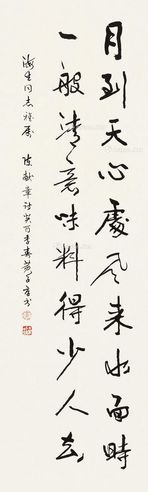 月到天心處風來水面時
一般清意味料得少人知
海生同志雅屬
陳獻章詩
書